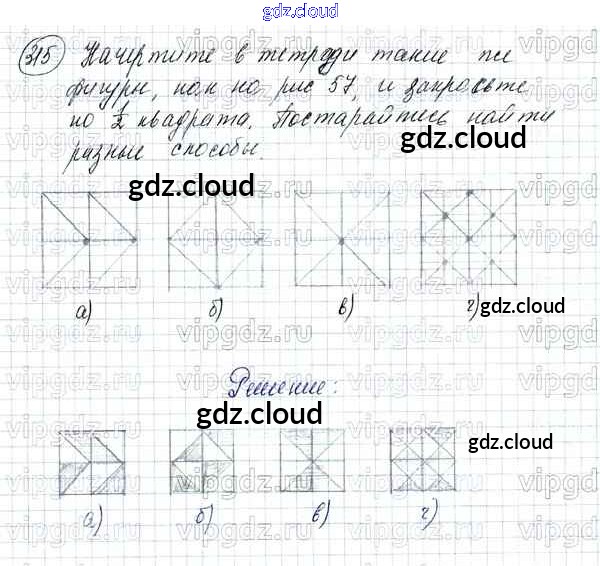 gdz.cloud
315 Начертите в тетради такие же
фигуры, как на рис 57, и закрасьте
по 1/2 квадрата. Постарайтесь найти
разные способы.
gdz.cloud
gdz.cloud
gdz.cloud
а) б) в) г)
Решение:
gdz.cloud
gdz.cloud
а) б) в) г)
vipgdz.ru